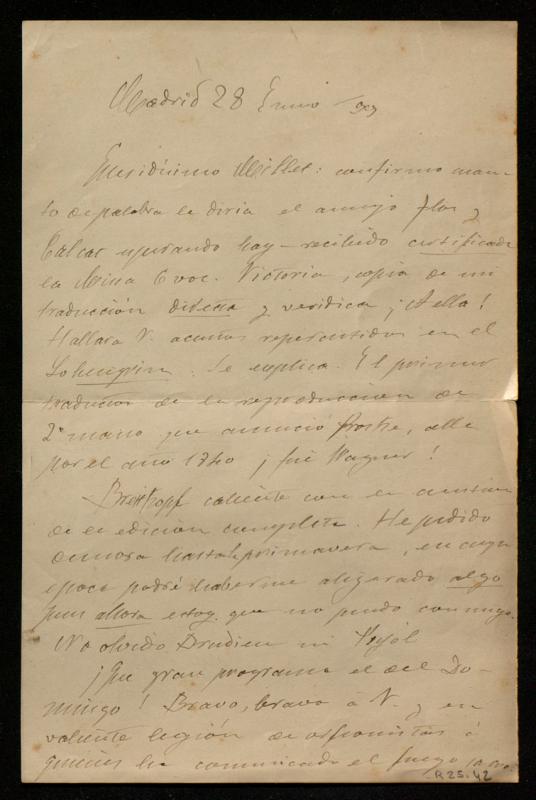 Madrid 28 Enero
Queridísimo Millet: confirmo cuan-
to de palabra le diria el amigo
hay recibido certificado
la Misa 6 voc. Victoria, copia de mi
traducción y veridica ¡A ella!
Hallará V. acentos repercutidos en el
Lohengrin. Se explica. El primer
traductor de la reproduccion de
2ª mano que anunció allá
por el año 1740 ¡fué Wagner!
Breitkopf caliente con
de edición completa. He pedido
demora hasta la primavera, en cuya
época podré haberme aligerado algo
pues ahora estoy que no puedo conmigo.
No olvido Brudieu ni Pujol
¡Que gran programa el del Do-
mingo! Bravo, bravo á V. y
valiente legión de orfeonistas á
quienes ha comunicado el fuego
R 25.42